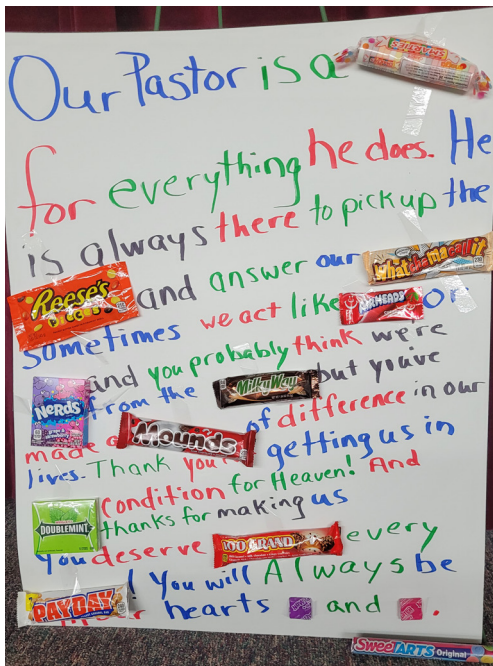 Our Pastor is a SMARTIES
for everything he does. He
is always there to pick up the
Reese's PIECES and answer our Whatchamacallit
Sometimes we act like AIRHEADS or
NERDS and you probably think we're
from the MilkyWay but you've
made a Mounds of difference in our
lives. Thank you getting us in
DOUBLEMINT condition for Heaven! And
thanks for making us
You deserve 100 GRAND every
PAYDAY! You will Always be
hearts and .
SWEETARTS Original